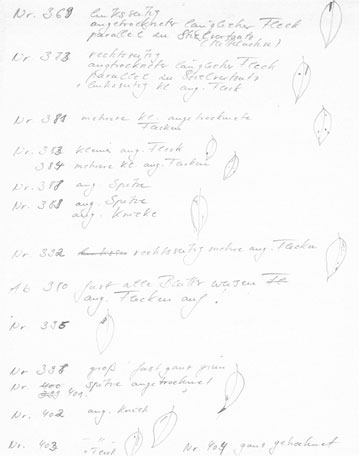 Nr. 369 linksseitig
angetrockneter länglicher Fleck
parallel zu Stielverlaufs
Nr. 373 rechtsseitig
angetrockneter länglicher Fleck
parallel zu Stielverlaufs
+ linksseitig kl. ang. Fleck
Nr. 381 mehrere kl. angetrocknete
Flecken
Nr. 383 kleiner ang. Fleck
384 mehrere kl. ang. Flecken
Nr. 388 ang. Spitze
Nr. 389 ang. Spitze
ang. Knicke
Nr. 392 rechtsseitig mehrere ang. Flecken
Ab 390 fast alle Blätter weisen
ang. Flecken auf.
Nr. 395
Nr 398 groß fast ganz grün
Nr. 400 Spitze angetrocknet
399 401
Nr. 402 ang. Knick
Nr. 403 - " - " -
+ Fleck
Nr. 404 ganz getrocknet